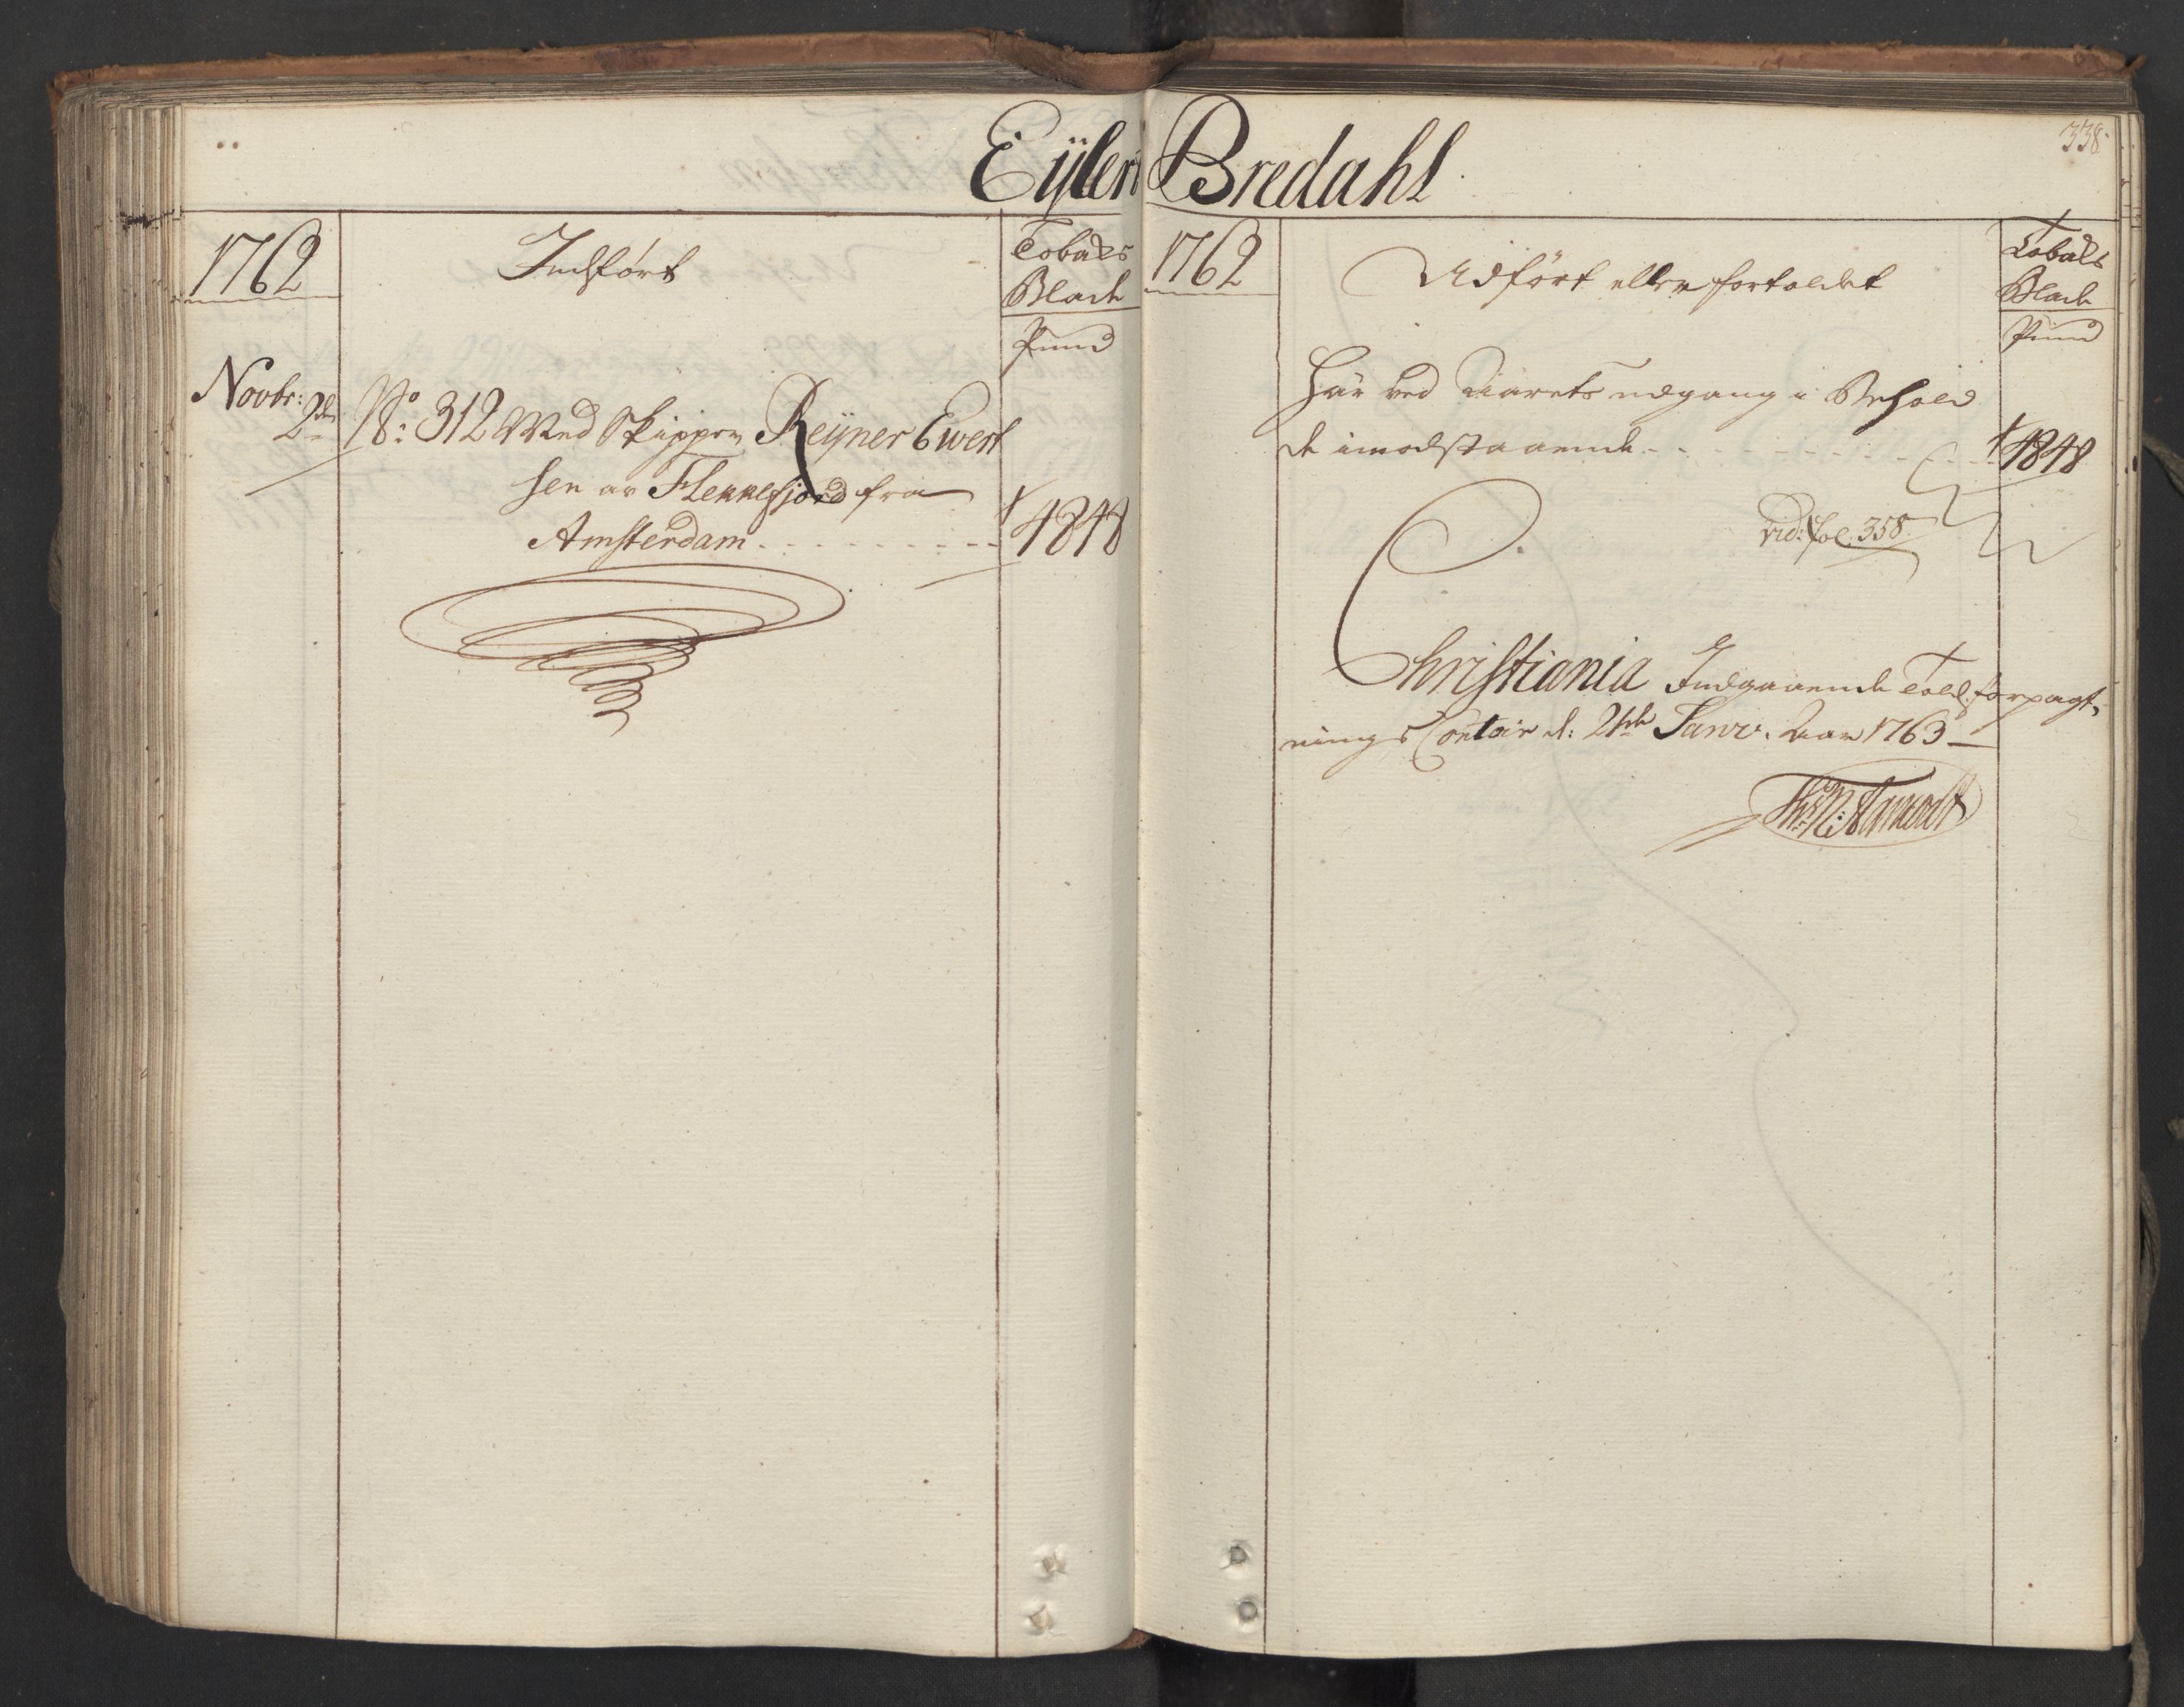 338.
Eÿlert Bredahl
1762
Indført
Tobaks
Blade
Pund
Novbr:
2de
No: 312 Med Skipper Reÿner Ewert
sen av Flekkefjord fra
Amsterdam
4848
1762
Udført eller fortoldet
Tobaks
Blade
Pund
Har ved Aarets udgang i Behold
de imodstaaende
4848
vid: fol: 358.
Christiania Indgaaende Told forpagt-
nings Contoir d: Janv: Aar 1763